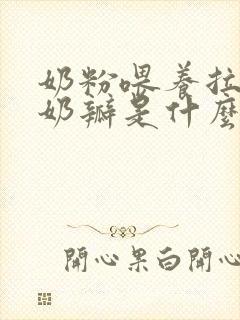 奶粉喂养拉
奶瓣是什麼
開心果白開心